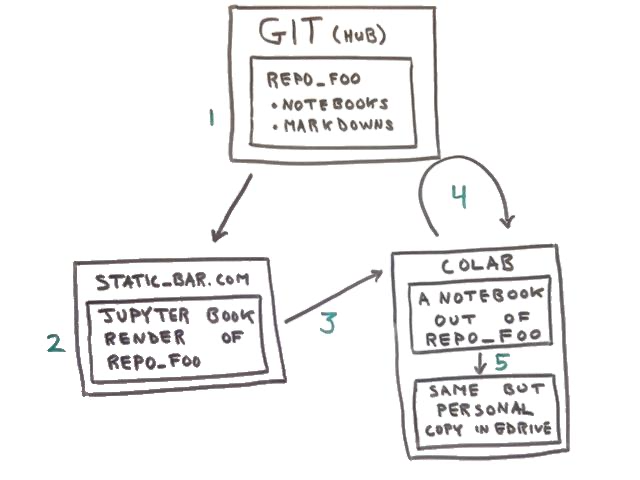 GIT (HUB)
REPO_FOO
• NOTEBOOKS
• MARKDOWNS
1
4
STATIC_BAR.COM
JUPYTER BOOK
RENDER OF
REPO_FOO
2
3
COLAB
A NOTEBOOK
OUT OF
REPO_FOO
5
SAME BUT
PERSONAL
COPY IN GDRIVE